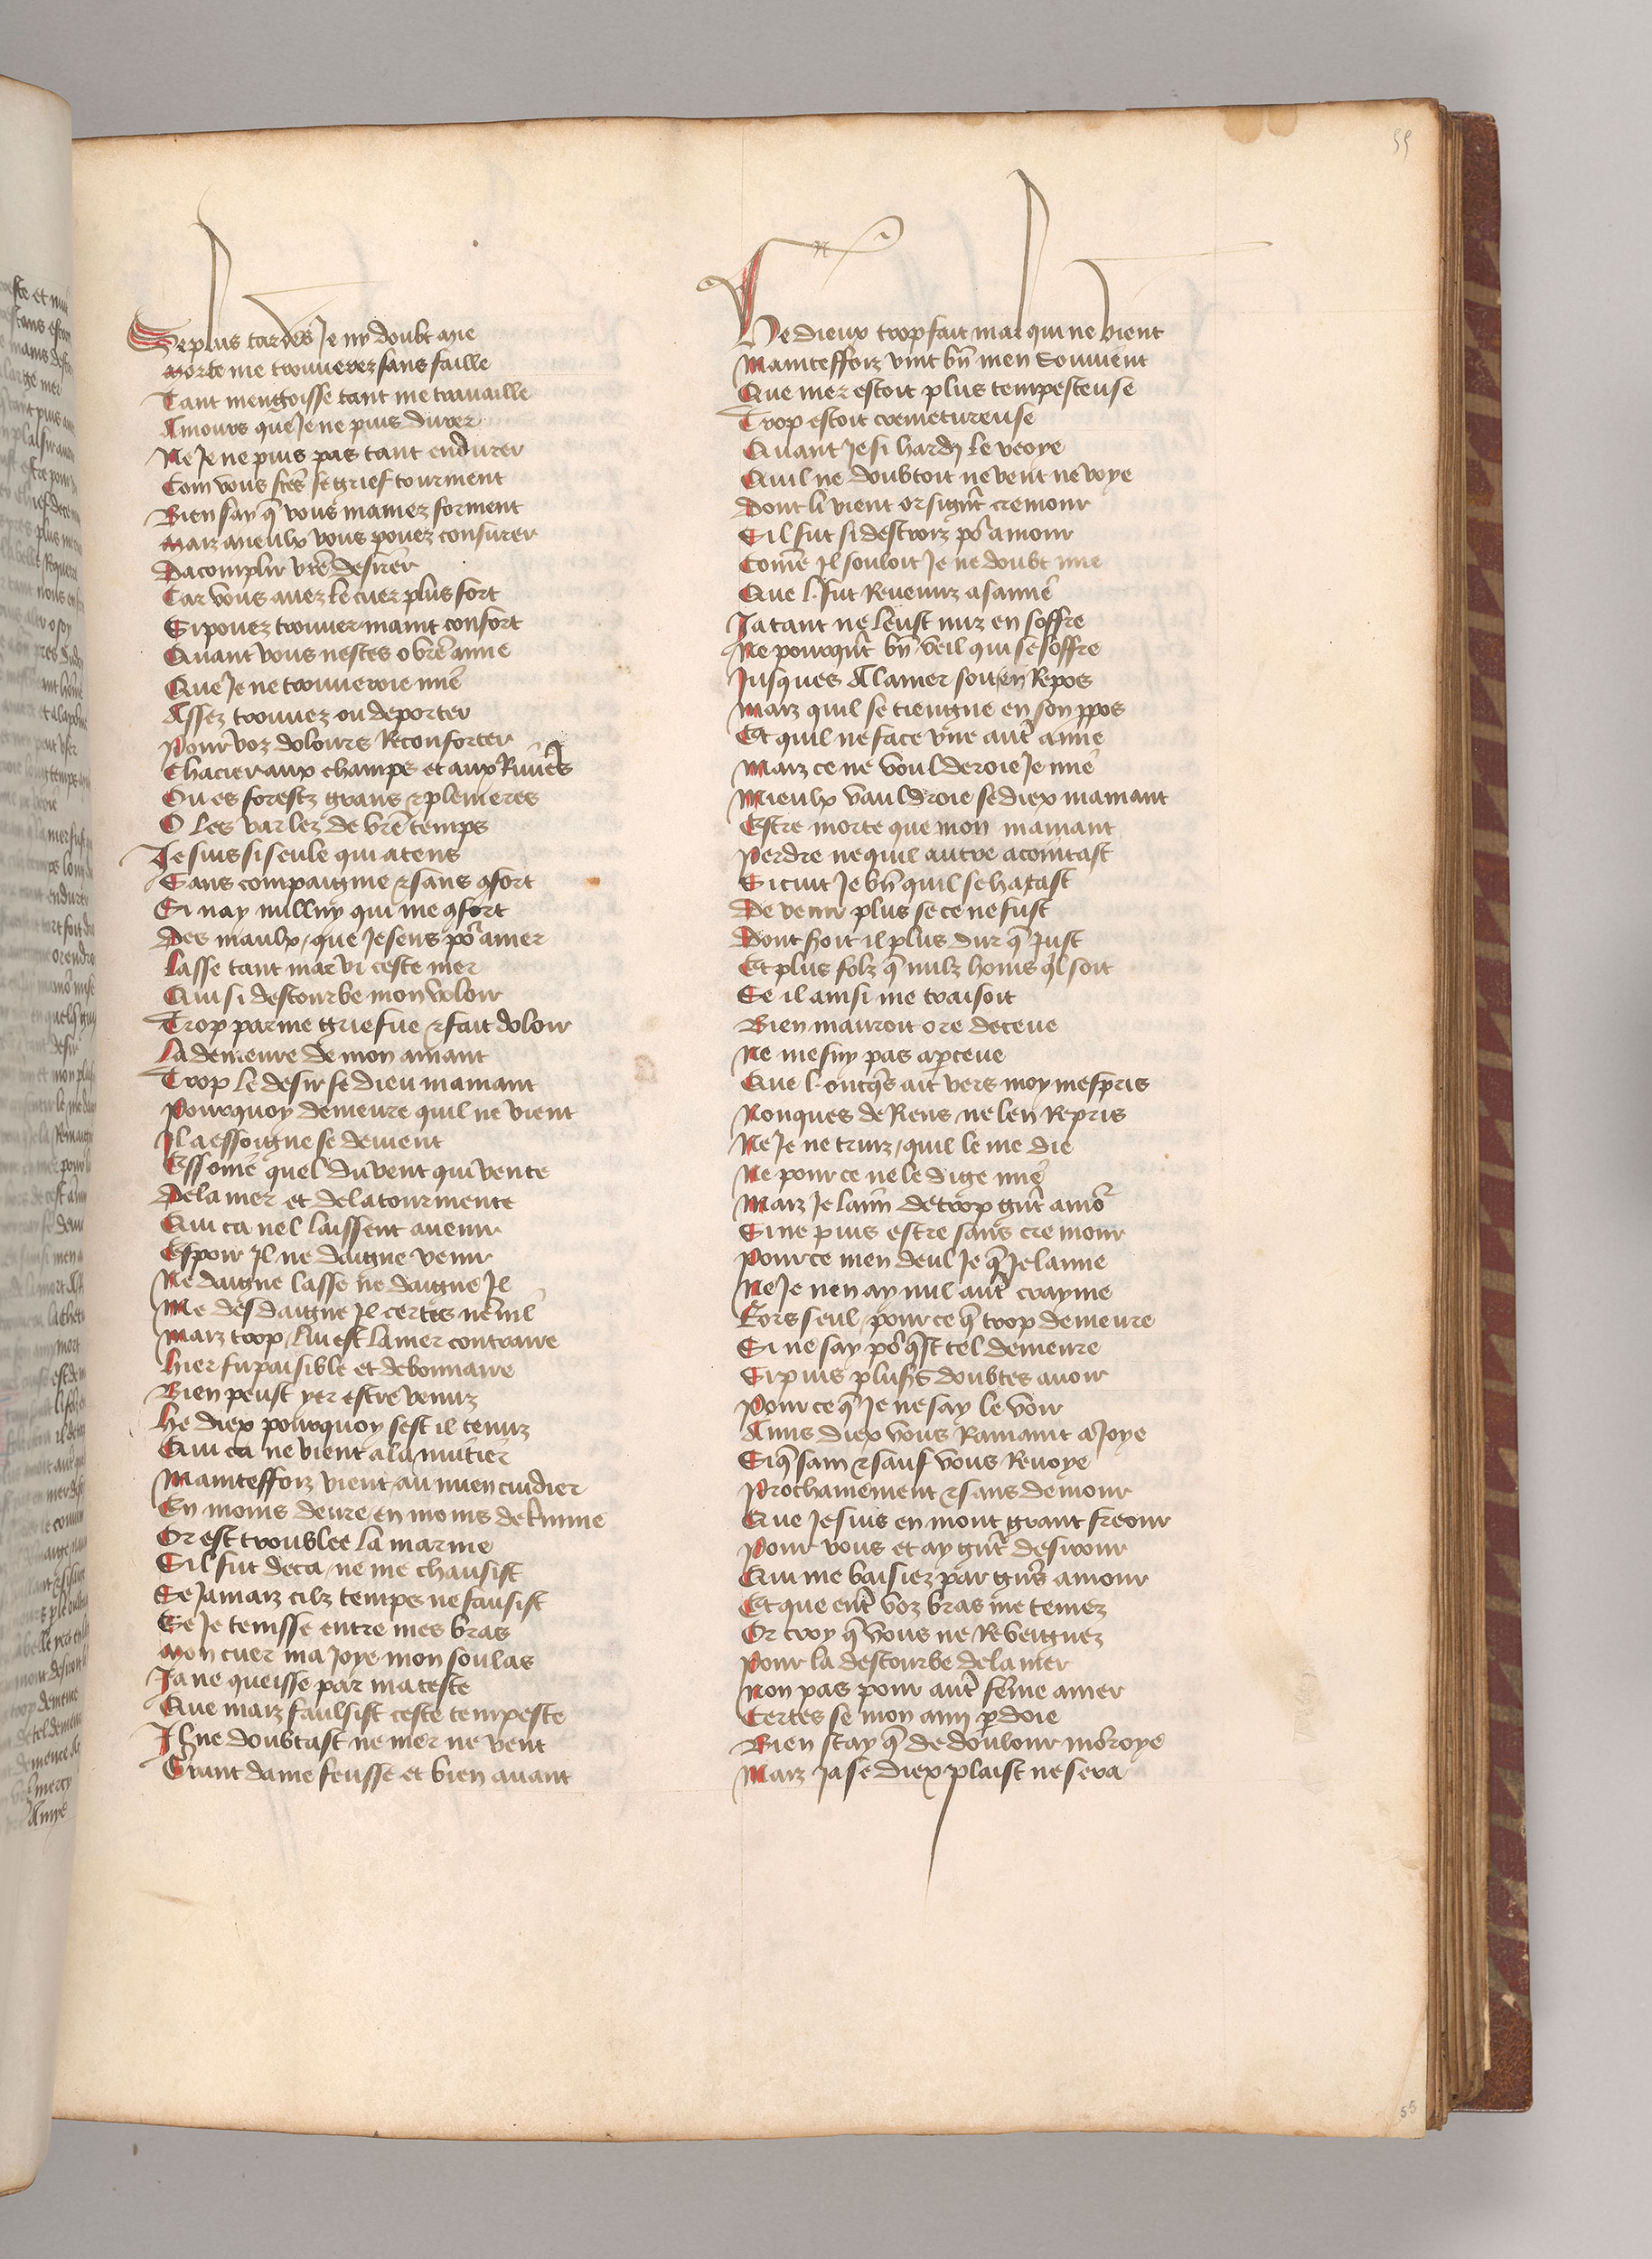 55
Se plus tardes Je ny doubt mie
Morte me trouverez sans faille
Tant mengoisse tant me travaille
Amours que Je ne puis durer
Ne Je ne puis pas tant endurer
Com vous se grief tourment
Bien say q̄ vous mamez forment
Maiz mieulx vous pouez consurer
Dacomplir vrē desirer
Car vous avez le cuer plus fort
Si pouez trouver maint confort
Quant vous nestes o vrē amie
Que Je ne trouveroie mie
Assez trouvez ou deporter
Pour voz dolours Reconforter
Chacier aux champs et aux Rivieres
Ou es forestz grans et plenieres
O les varlez de vrē temps
Je suis si seule qui atens
Sans compaignie et sans ꝯfort
Si nay nulluy qui me ꝯfort
Des maulx que Je sens por amer
Lasse tant mar vi ceste mer
Qui si destourbe mon voloir
Trop par me griefve et fait doloir
La demeure de mon amant
Trop le desir se dieu mamant
Pourquoy demeure quil ne vient
Il a essoigne se devient
Essoine quel du vent qui vente
De la mer et de la tourmente
Qui ca nel laissent avenir
Espoir Il ne daigne venir
Ne daigne lasse ne daigne Il
Me desdaigne Il certes nenil
Maiz trop lui est la mer contraire
Hier fu paisible et debonnaire
Bien peust yer estre venuz
He diex pourquoy sest il tenuz
Qui ca ne vient a la nuitier
Mainteffoiz vient au mien cuidier
En moins deure en moins de
Or est troublee la marine
Sil fut deca ne me chausist
Se Jamaiz cilz temps ne fausist
Se Je tenisse entre mes bras
Mon cuer ma Joye mon soulas
Ja ne queisse par ma teste
Que maiz faulsist ceste tempeste
Il ne doubtast ne mer ne vent
Grant dame feusse et bien avant
He dieux trop fait mal qui ne vient
Mainteffoiz vint bn̄ men Souvient
Que mer estoit plus tempesteuse
Trop estoit cremetureuse
Quant Je si hardy le veoye
Quil ne doubtoit ne vent ne voye
Dont li vient or si gnt cremour
Sil fut si destroiz por amour
Come Il souloit Je ne doubt mie
Que l. fut Revenuz a samie
Ja tant ne leust nuz en soffre
Ne pourqnt bn̄ veil qui se soffre
Jusques A la mer soit en Repos
Maiz quil se tiengne en son ꝓpos
Et quil ne face une autr̄ amie
Maiz ce ne vouldroie Je mie
Mieulx vauldroie se diex mamant
Estre morte que mon mamant
Perdre ne quil autre acointast
Si cuit Je bn̄ quil se hatast
De venir plus se ce ne fust
Dont soit il plus dur q̄ fust
Et plus folz q̄ nulz homs ql soit
Se il ainsi me traisoit
Bien mauroit ore deceue
Ne me suy pas aꝑceue
Que l. onques ait vers moy mespris
Nonques de Riens ne len Repris
Ne Je ne truiz quil le me die
Ne pour ce ne le dige mie
Maiz Je laim de trop gnt amor
Si ne puis estre sans cremour
Pour ce men deul Je q̄ Je laime
Ne Je nen ay nul autr̄ crayme
Fors seul pour ce q̄ trop demeure
Si ne say por qst tel demeure
Si puis plus̄rs doubtes avoir
Pour ce q̄ Je ne say le voir
Amis diex vous Ramaint a Joye
Si q̄ sain et sauf vous Revoye
Prochainement et sans demour
Que Je suis en mont grant freour
Pour vous et ay gnt desirour
Qui me baisiez par gns amour
Et que entr̄ voz bras me tenez
Or croy q̄ vous ne Revengnez
Pour la destourbe de la mer
Non pas pour autr̄ feme amer
Certes se mon ami ꝑdoie
Bien scay q̄ de doulour morroye
Maiz Ja se diex plaist ne sera
55